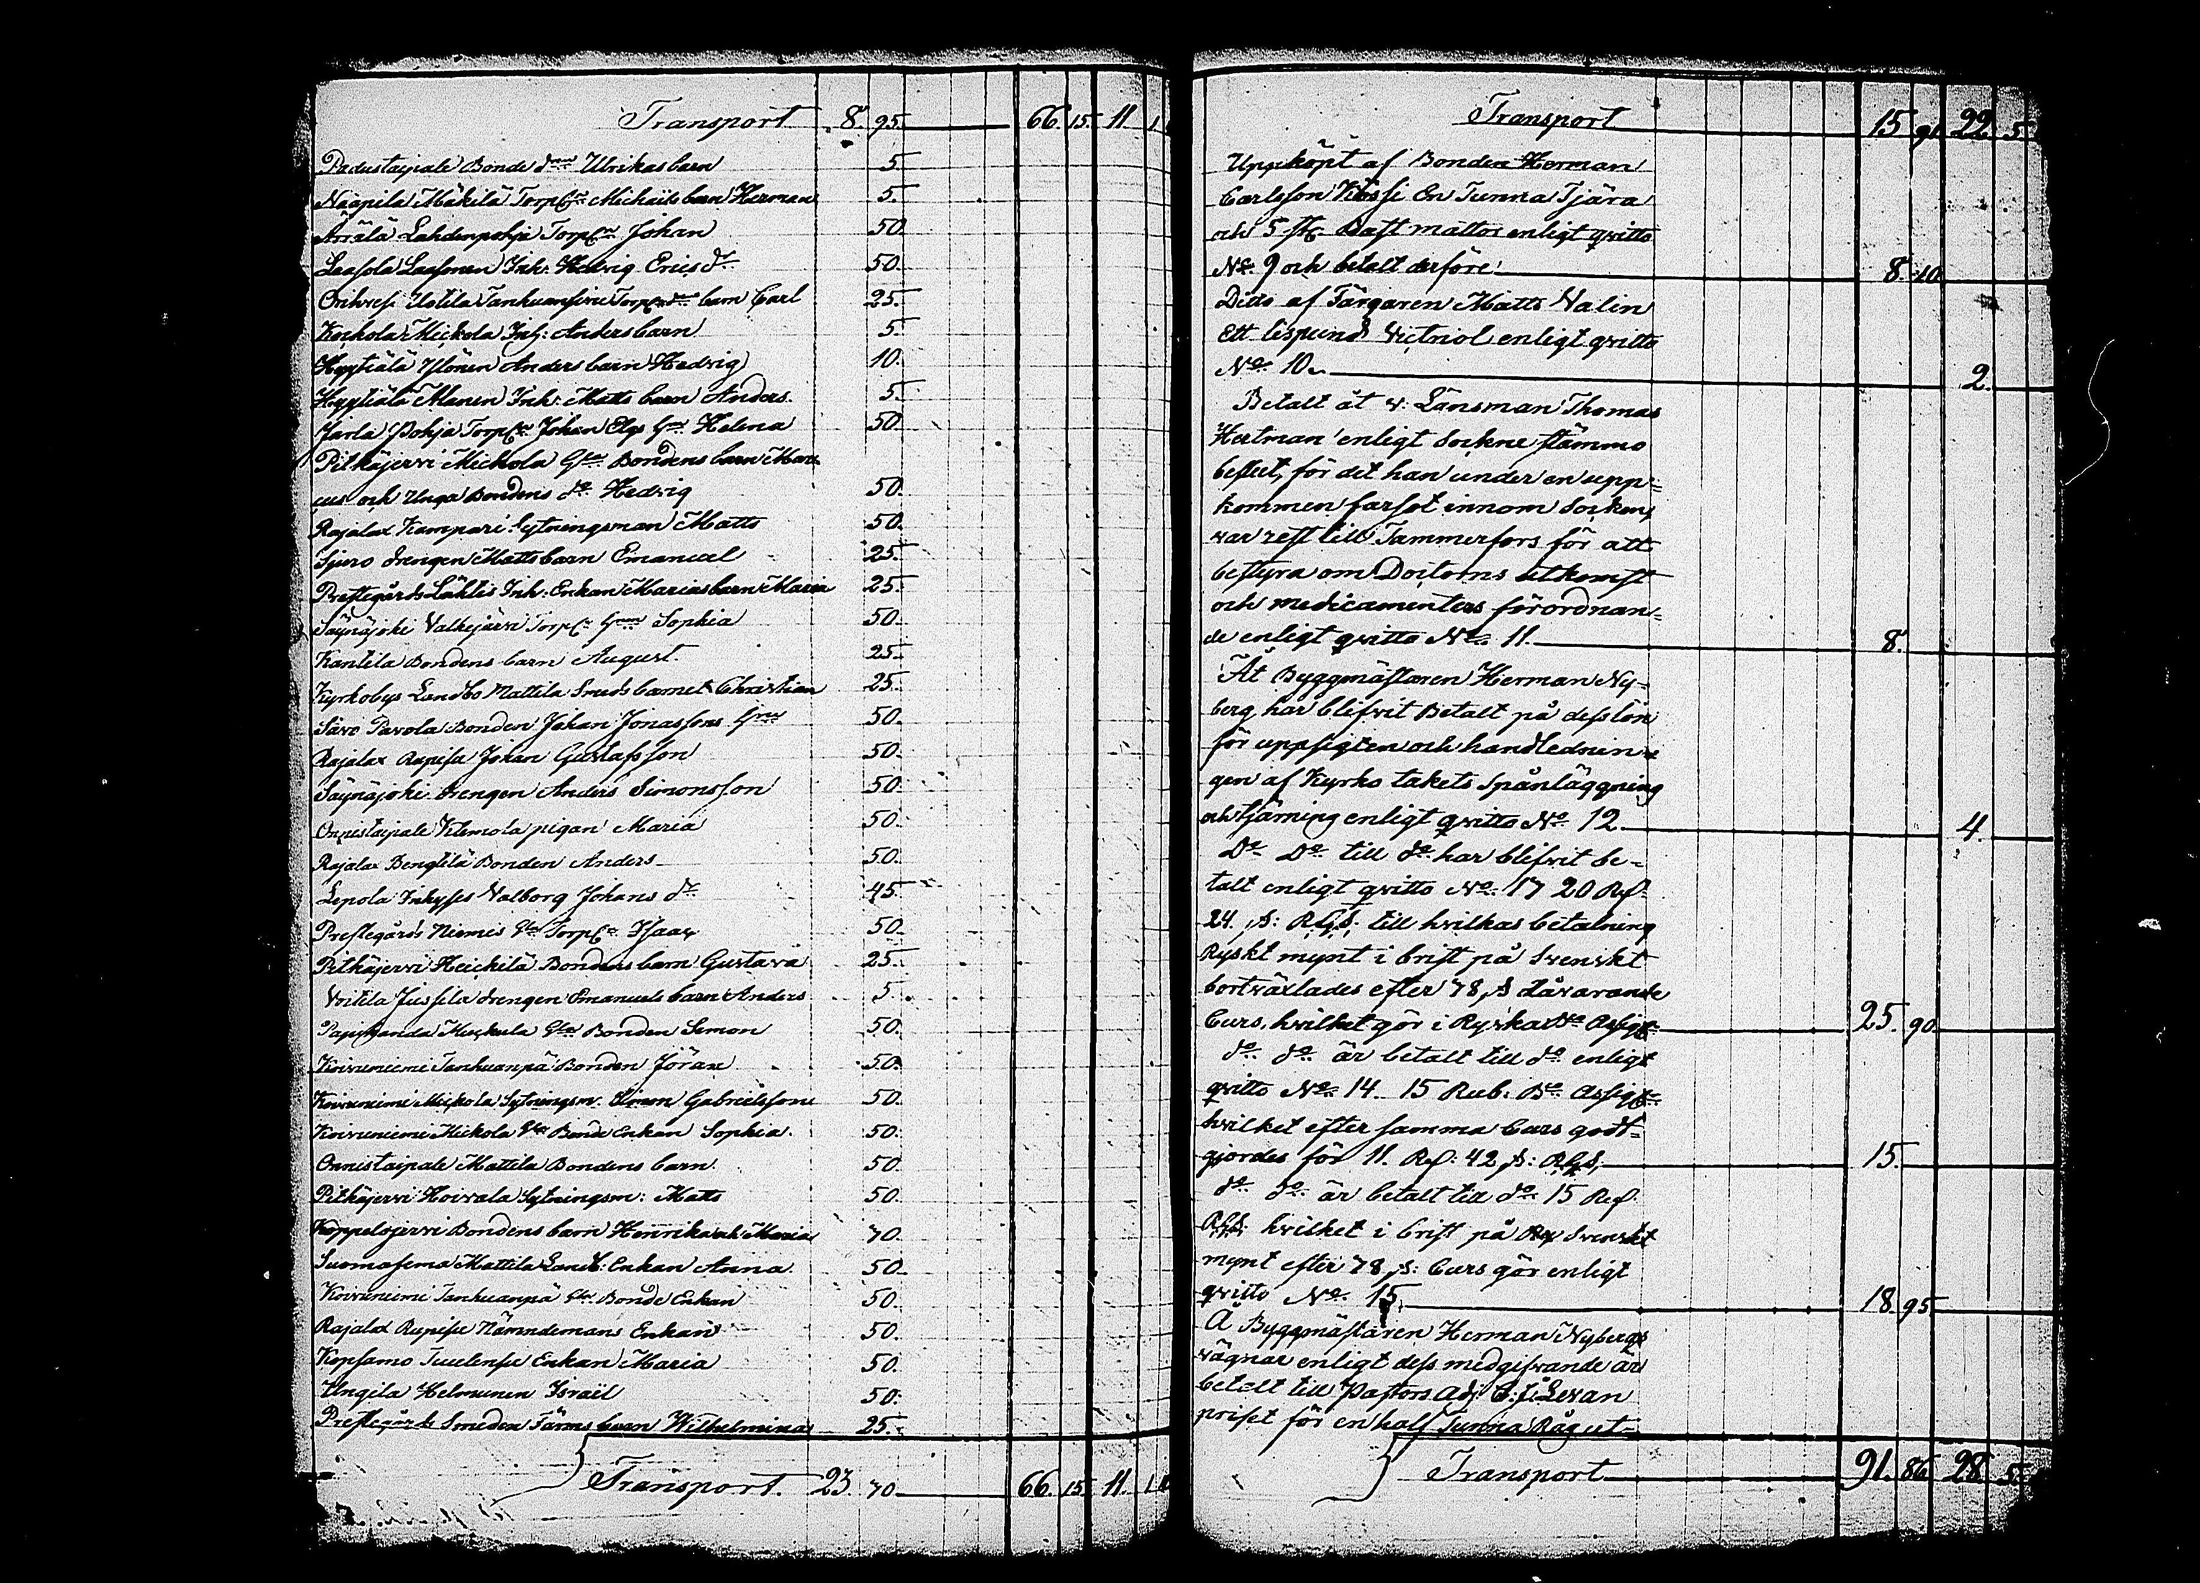 Transport 8. 95. 66. 15. 11
Padustaipale Bonde d:r Ulrikas barn 5.
Näapila Mäkilä Torp:rn Michaëls barn Herman 5.
Ärrälä Lahdenpohja Torp:rn Johan 50.
Laasola Laasonen Inh: Hedvig Erics d:r 50.
Orihvesi Uotila Tanhuansivu Torp:rns barn Carl 25.
Kockola Mickola Inh: Anders barn 5.
Hyytiälä Ylönen Anders barn Hedvig 10.
Hyytiälä Mänen Inh: Matts barn Anders. 5.
Jarla Pohja Torp:rn Johan Elgs H:u Helena 50.
Pitkäjervi Mickola G:la Bondens barn Marc
us och Unga Bondens d:o Hedvig 50.
Rajalax Kampari Sytningsman Matts 50.
Sjuro drengen Matts barn Emanuel 25.
Prestegårds Lähtis Inh: Enkan Marias barn Maria 25.
Säynäjoki Valkejärvi Torp:rn H:u Sophia 50.
Kantila Bondens barn August. 25.
Kyrkobys Landbo Mattila Smeds barnet Christian 25.
Säro Pavola Bonden Johan Jonassons H:u 50.
Rajalax Rupisu Johan Gustafsson 50.
Säynäjoki drengen Anders Simonsson 50.
Onnistaipale Klemola pigan Maria 50.
Rajalax Bengtilä Bonden Anders 50.
Lepola Inhyses Valborg Johans d:r 45.
Prestegårds Niemis G:la Torp:rn Isaac 50.
Pitkäjervi Heickilä Bondens barn Gustava 25.
Voitila Jussila drengen Emanuels barn Anders 5.
Mickula G:la Bonden Simon 50.
Koivuniemi Tanhuanpä Bonden Jöran 50.
Koivuniemi Mickola Sytningsm: Simon Gabrielsson 50.
Koivuniemi Mickola G:la Bonde Enkan Sophia. 50.
Onnistaipale Mattila Bondens barn. 50.
Pitkäjervi Hoivala Sytningsm: Matts 50.
Koppelojervi Bondens barn Henrika och Maria 70.
Suomasema Mattila Landb: Enkan Anna 50.
Koivuniemi Tanhuanpä G:la Bonde Enkan 50.
Rajalax Rupisu Nämndemans Enkan 50.
Kopsamo Tuulensu Enkan Maria 50.
Ungila Helmunen Israël 50.
Prestegårds Smeden Färms barn Wilhelmina 25.
Transport. 23. 70. 66. 15. 11.
Transport 15. 91. 22. 5
Uppköpt af Bonden Herman
Carlsson Kossi En Tunna Tjära
och 5 st: Bast mattor enligt qvitto
N:o 9 och betalt derföre 8. 10.
Ditto af Färgaren Matts Valin
Ett lispund Victriol enligt qvitto
N:o 10. 2.
Betalt åt v: Länsman Thomas
Hertman enligt Sockne stämmo
beslut, för det han under en upp=
kommen farsot innom Socken,
var rest till Tammerfors för att
bestyra om Doctorns utkomst
och medicamenters förordnan=
de enligt qvitto N:o 11. 8.
Åt Byggmästaren Herman Ny=
berg har blifvit Betalt på dess lön
för uppsigten och handlednin=
gen af Kyrko takets Spånläggning
och tjärning enligt qvitto N:o 12. 4.
D:o D:o till d:o har blifvit be=
talt enligt qvitto N:o 17 20 R:
24. s: RGS: till hvilkas betalning
Ryskt mynt i brist på Svenskt
bortväxlades efter 78 s dåvarande
Curs, hvilket gör i Ryska B:o Assig: 25. 90.
d:o d:o är betalt till d:o enligt
qvitto N:o 14. 15 Rub: B:o Assig:
hvilket efter samma Curs godt=
gjordes för 11. R: 42 s: RGS. 15.
d:o d:o är betalt till d:o 15 R:
RGS: hvilket i brist på Svenskt
mynt efter 78 s: Curs gör enligt
qvitto N:o 15 18. 95.
Å Byggmästaren Herman Nybergs
vägnar enligt dess medgifvande är
betalt till Pastors Adj: Levan
priset för en half Tunna Råg ut=
Transport 91. 86. 28. 5